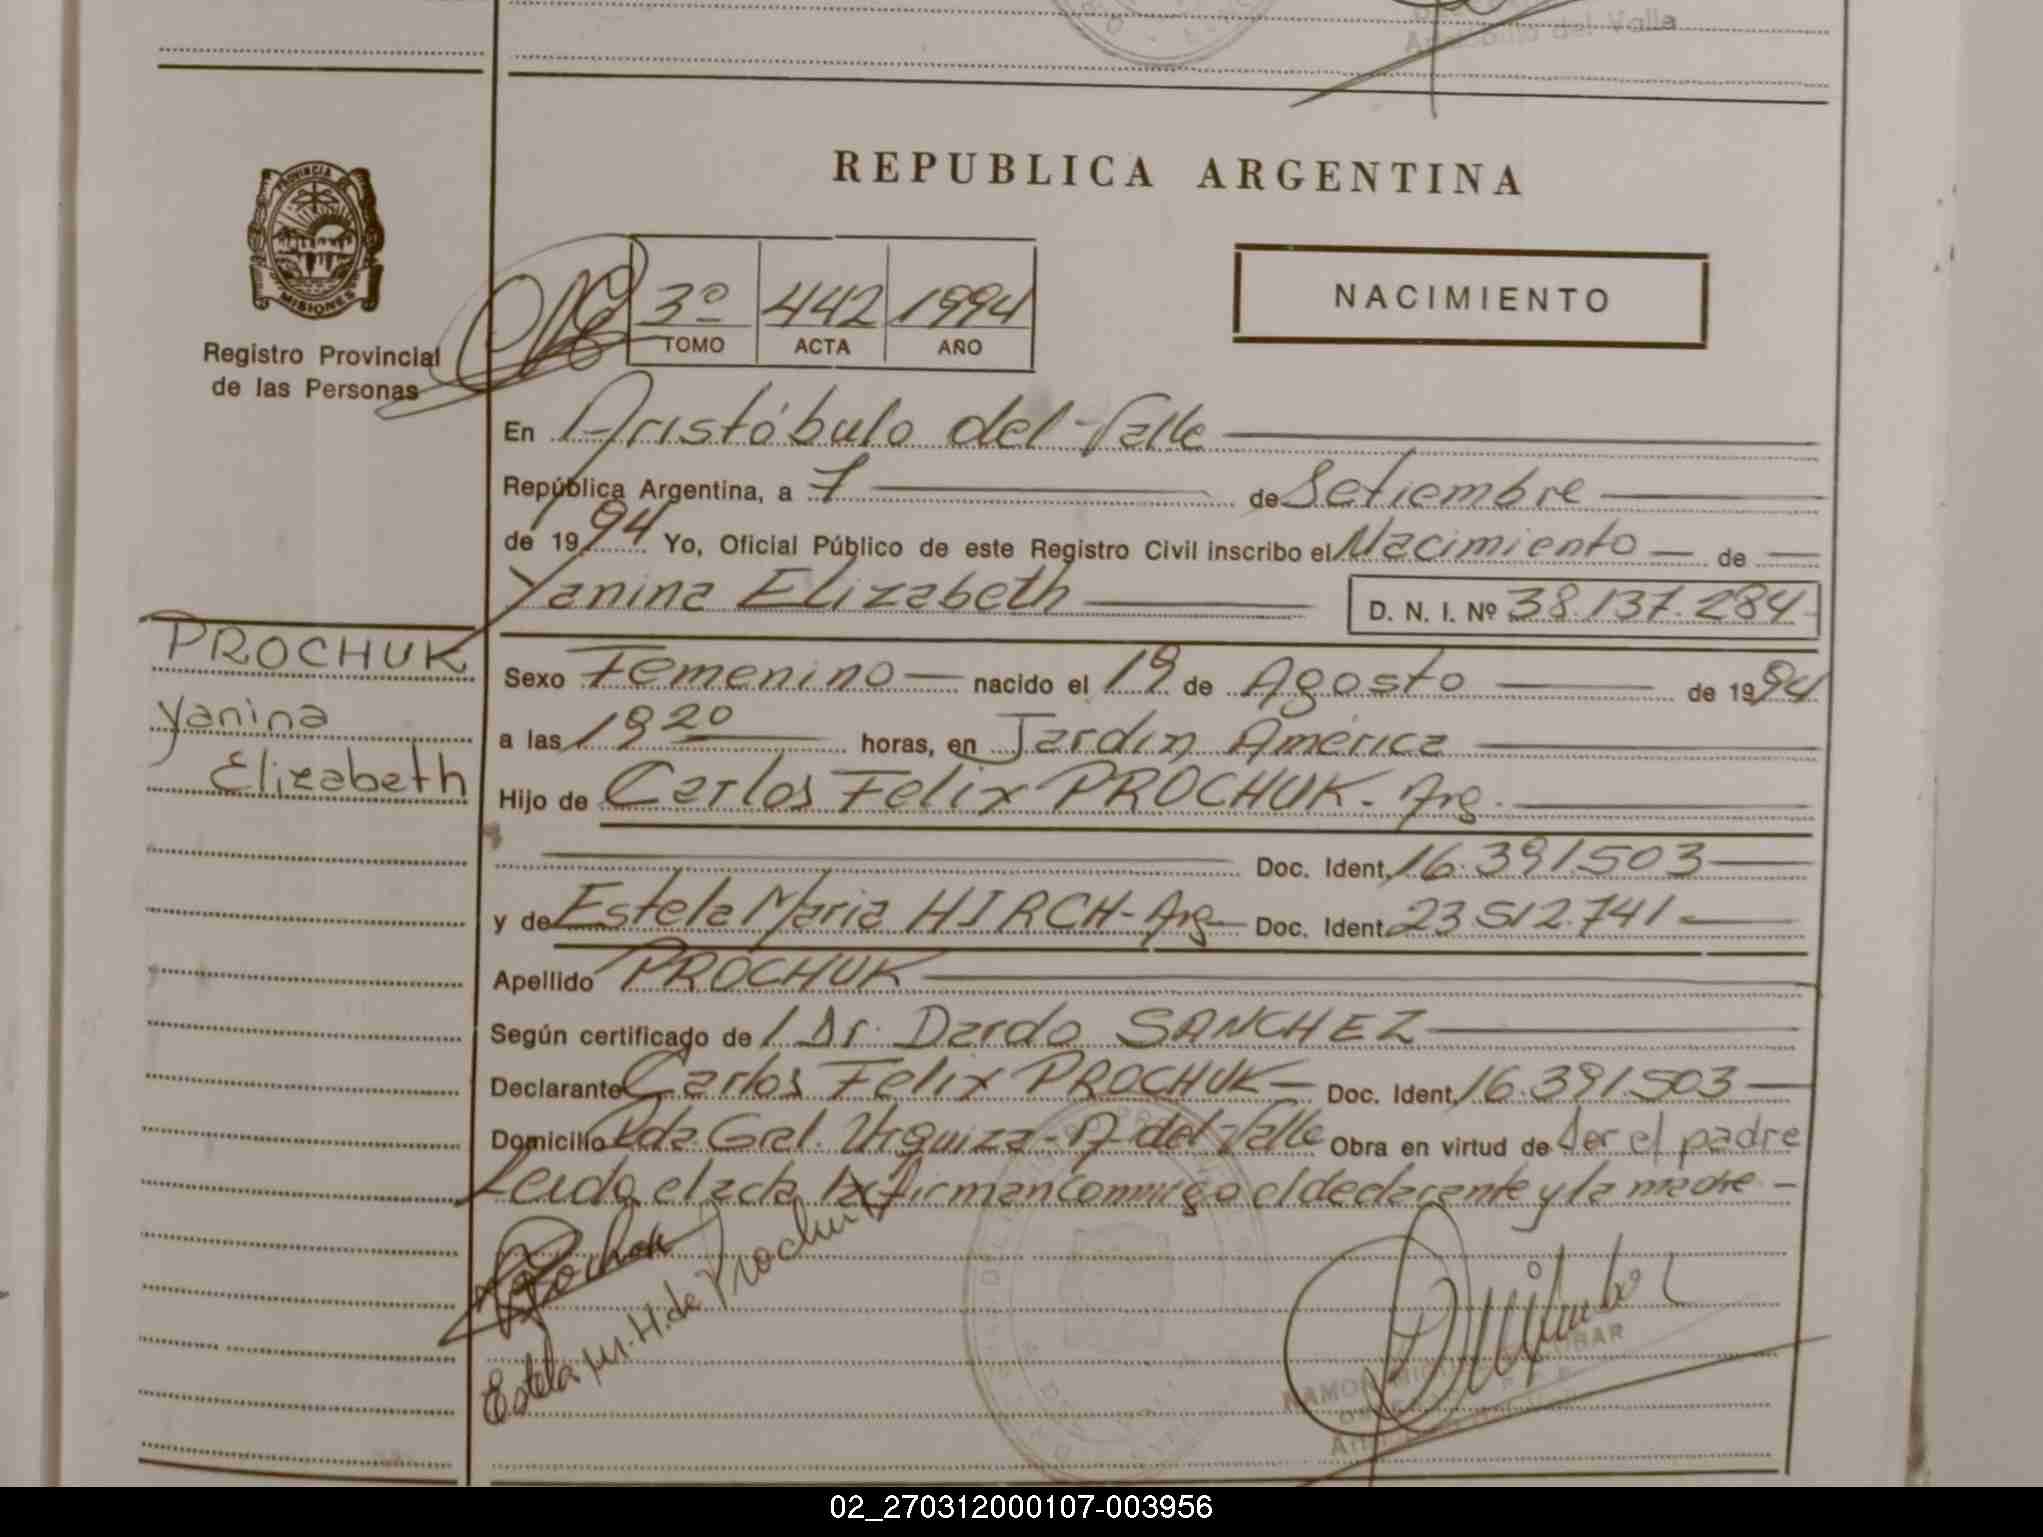 Aristóbulo del Valle
REPUBLICA ARGENTINA
PROVINCIA DE
MISIONES
Registro Provincial
de las Personas
3º 442 1994
TOMO ACTA AÑO
NACIMIENTO
En Aristóbulo del Valle
República Argentina, a 7 de Setiembre
de 1994 Yo, Oficial Público de este Registro Civil inscribo el Nacimiento de
Yanina Elizabeth D. N. I. Nº 38.137.284
PROCHUK
Yanina
Elizabeth
Sexo Femenino nacido el 19 de Agosto de 1994
a las 19 20 horas, en Jardín América
Hijo de Carlos Felix PROCHUK - Arg.
Doc. Ident. 16.391.503
y de Estela Maria HIRCH - Arg Doc. Ident. 23.512.741
Apellido PROCHUK
Según certificado de l Dr. Dardo SANCHEZ
Declarante Carlos Felix PROCHUK Doc. Ident. 16.391.503
Domicilio Gral. Urquiza - A del Valle Obra en virtud de ser el padre
Leida el acta la firman conmigo el declarante y la madre
Estela M. H. de Prochuk
02_270312000107-003956